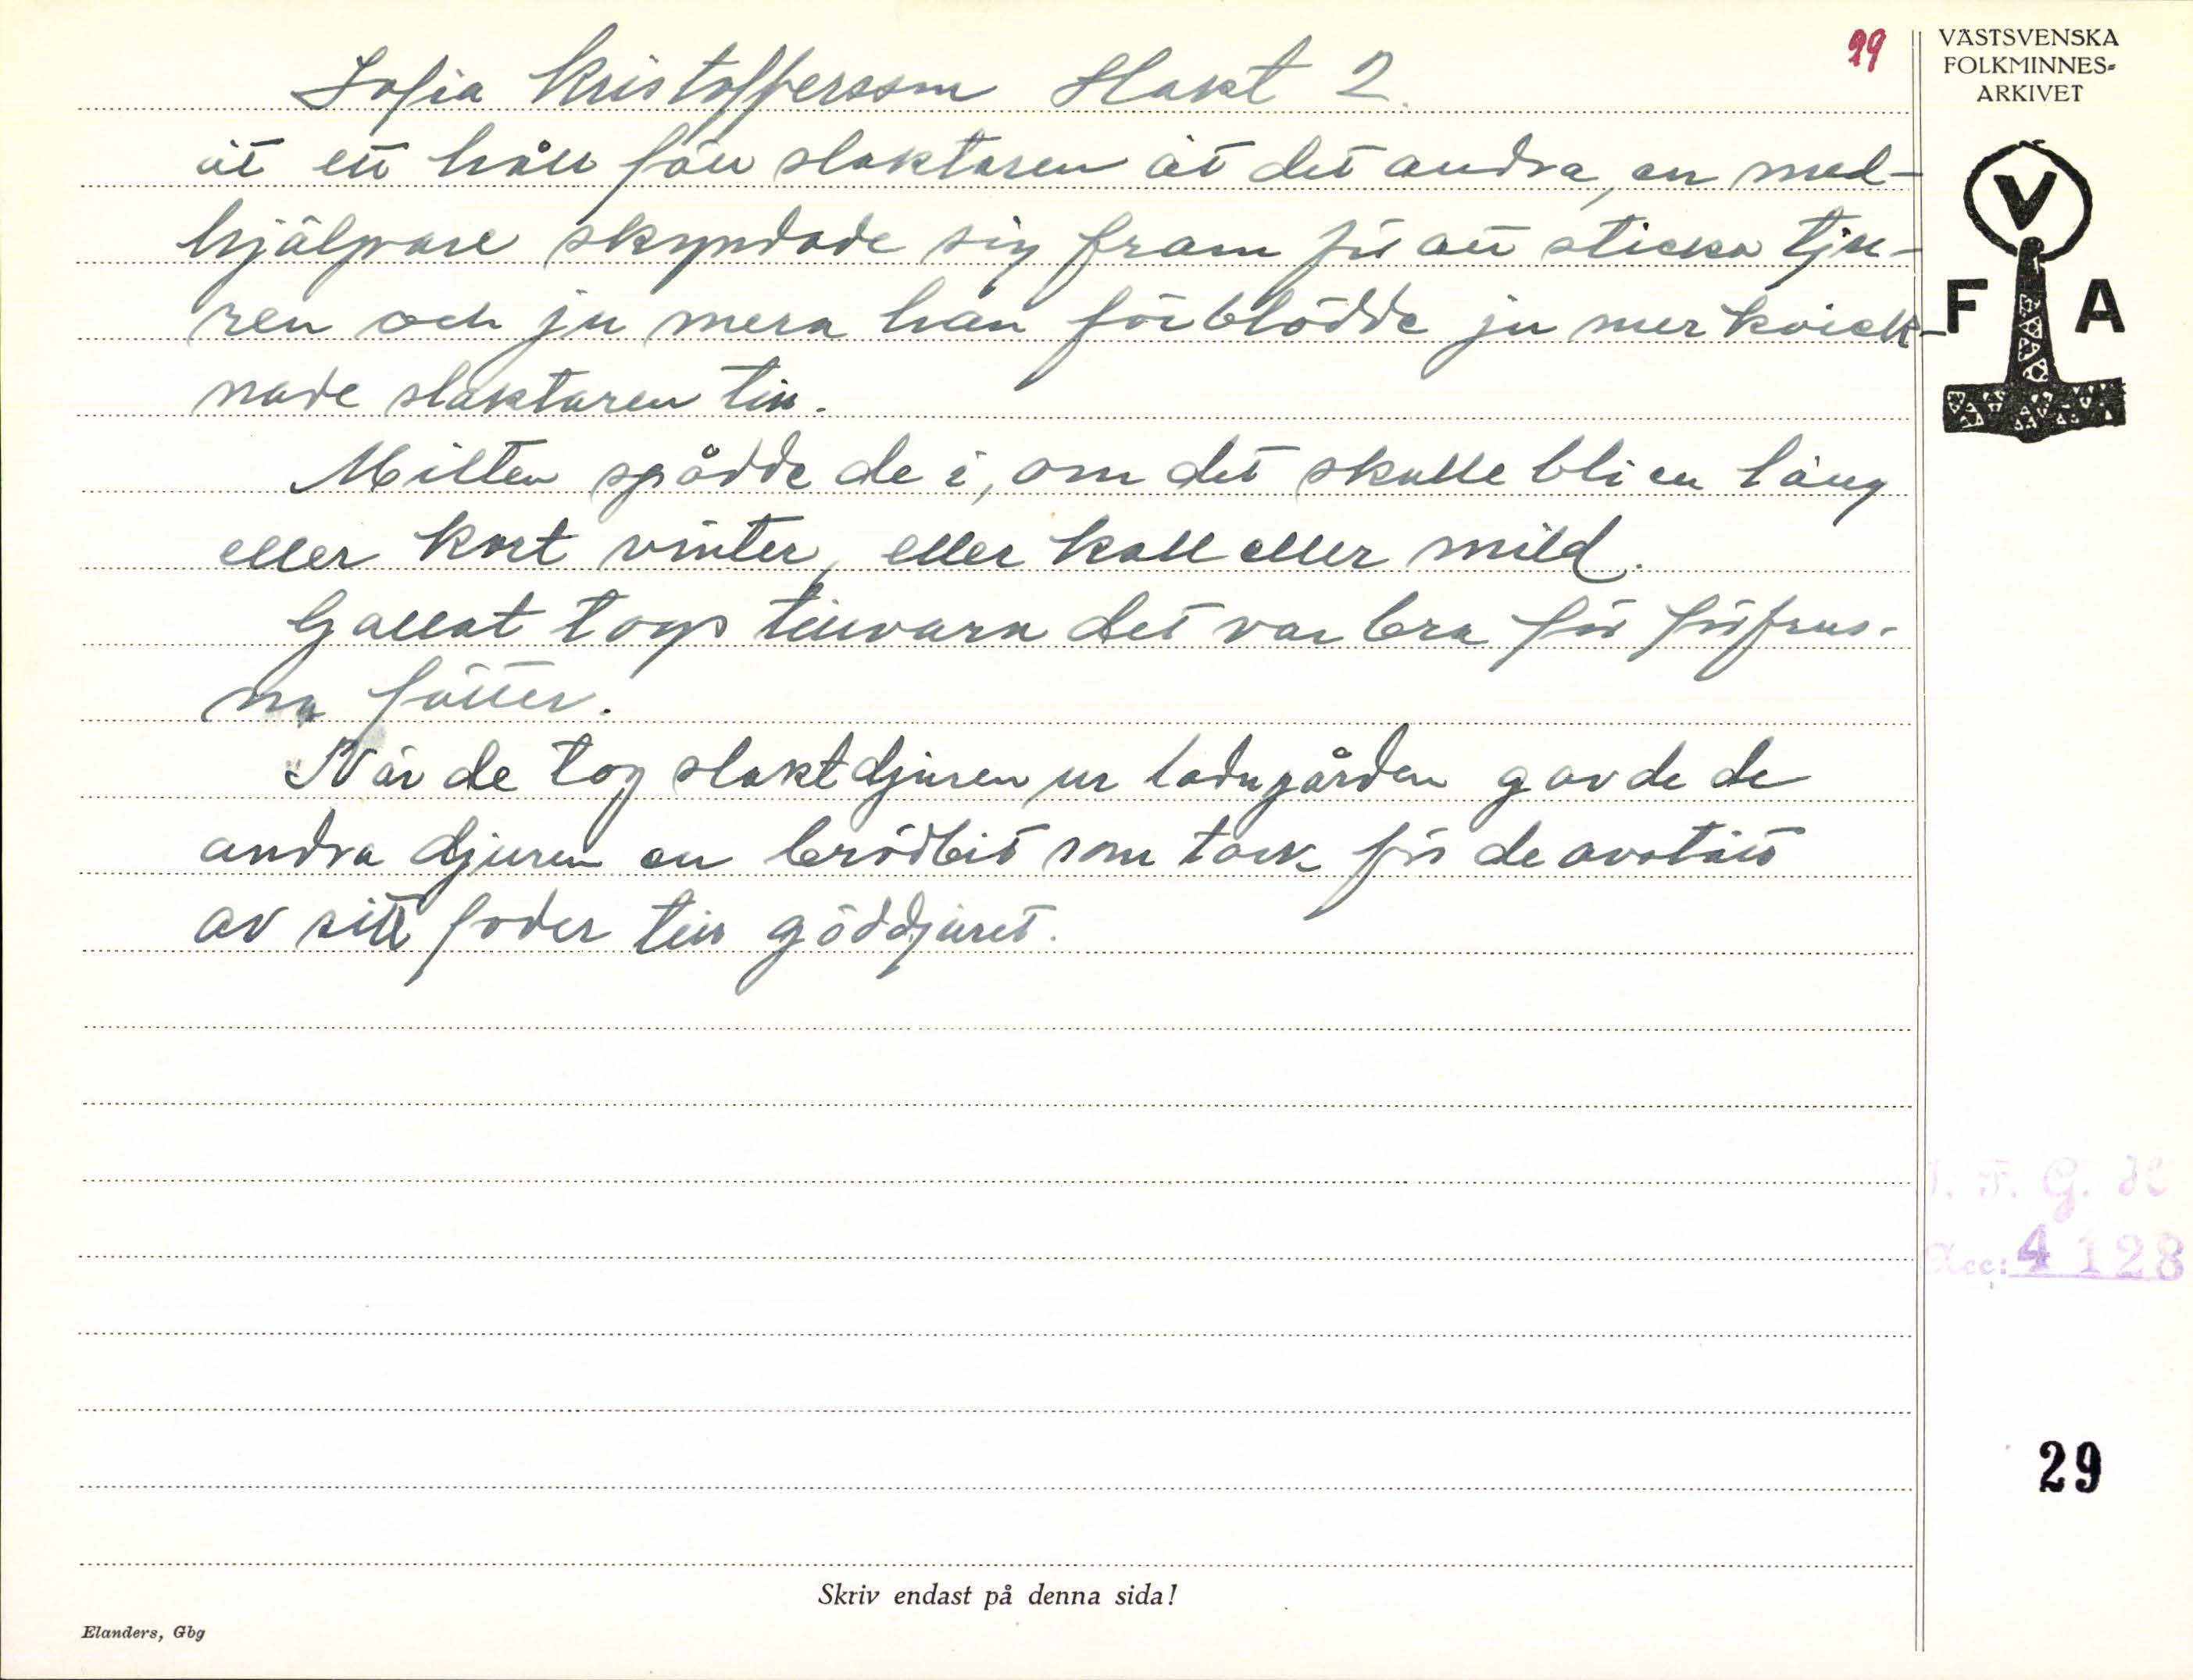 Sofia Kristoffersson Slakt 2.
99
åt ett håll föll slaktaren åt det andra, en med-
hjälpare skyndade sig fram för att sticka tju-
ren och ju mera han förblödde ju mer kvick-
nade slaktaren till.
Milten spådde de i, om det skulle bli en lång
eller kort vinter, eller kall eller mild.
Gallat togs tillvara det var bra för förfrus-
na fötter.
När de tog slaktdjuren ur ladugården gav de de
andra djuren en brödbit som tack för de avstått
av sitt foder till göddjuret.
Skriv endast på denna sida!
Elanders, Gbg
VÄSTSVENSKA
FOLKMINNES-
ARKIVET
V
F A
I. F. G. H
Acc: 4128
29